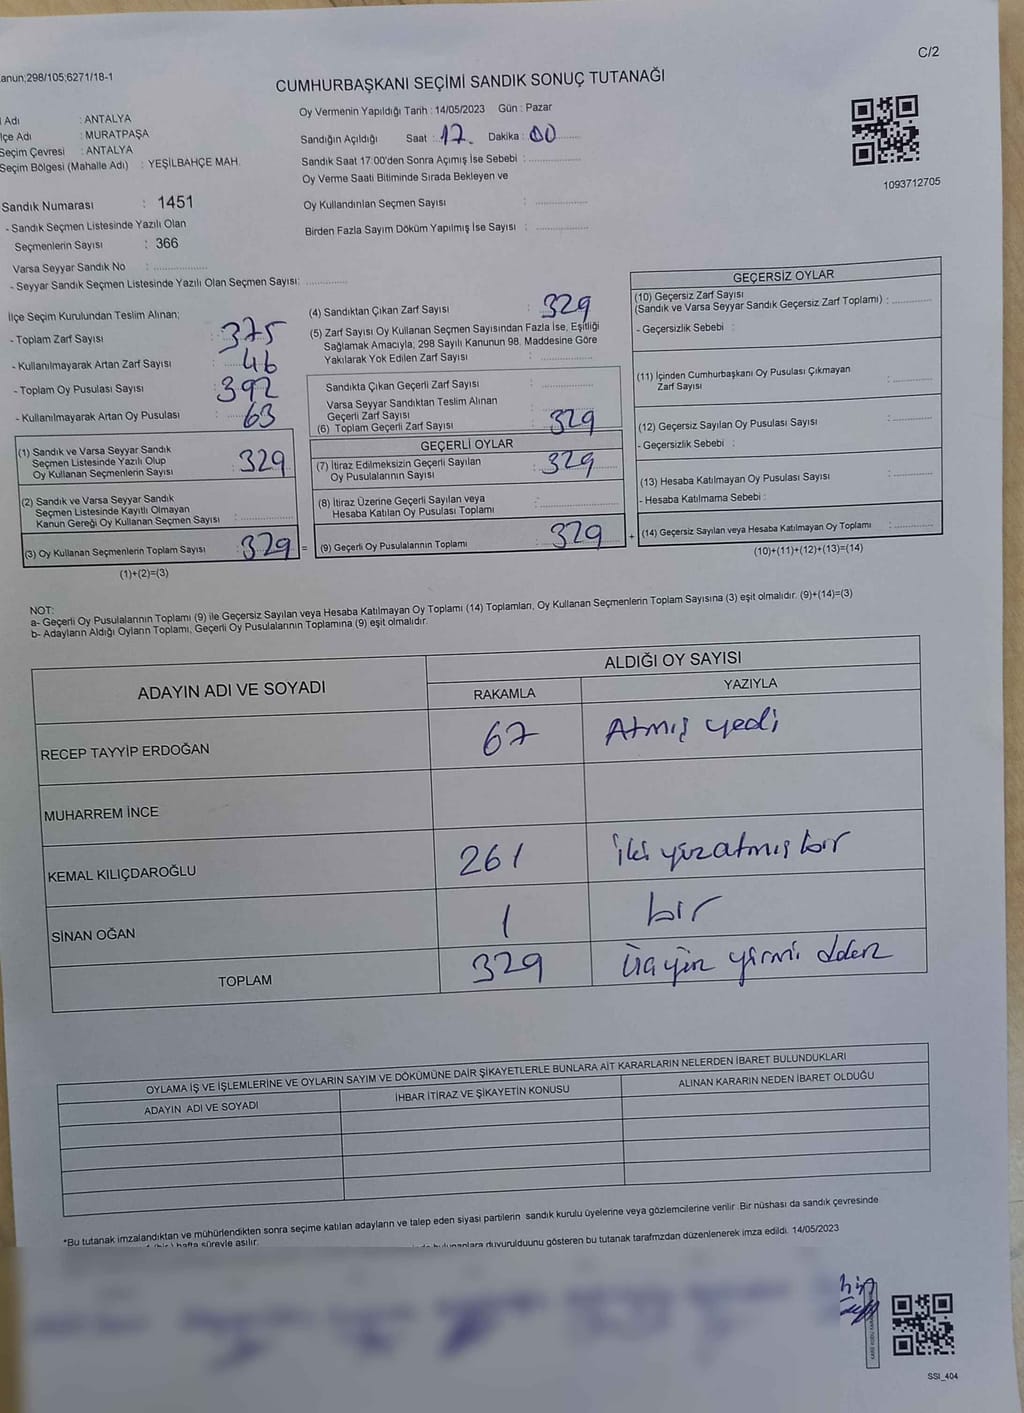 C/2
anun;298/105;6271/18-1
CUMHURBAŞKANI SEÇİMİ SANDIK SONUÇ TUTANAĞI
Adı : ANTALYA
lçe Adı : MURATPAŞA
Seçim Çevresi : ANTALYA
Seçim Bölgesi (Mahalle Adı) : YEŞİLBAHÇE MAH.
Oy Vermenin Yapıldığı Tarih : 14/05/2023 Gün : Pazar
Sandığın Açıldığı Saat : 17. Dakika : 00
Sandık Saat 17:00'den Sonra Açımış İse Sebebi :
Oy Verme Saati Bitiminde Sırada Bekleyen ve
Oy Kullandırılan Seçmen Sayısı :
Birden Fazla Sayım Döküm Yapılmış İse Sayısı :
1093712705
Sandık Numarası : 1451
- Sandık Seçmen Listesinde Yazılı Olan
Seçmenlerin Sayısı : 366
Varsa Seyyar Sandık No :
- Seyyar Sandık Seçmen Listesinde Yazılı Olan Seçmen Sayısı:
İlçe Seçim Kurulundan Teslim Alınan;
- Toplam Zarf Sayısı : 375
- Kullanılmayarak Artan Zarf Sayısı : 46
- Toplam Oy Pusulası Sayısı : 392
- Kullanılmayarak Artan Oy Pusulası : 63
(1) Sandık ve Varsa Seyyar Sandık
Seçmen Listesinde Yazılı Olup
Oy Kullanan Seçmenlerin Sayısı : 329
(2) Sandık ve Varsa Seyyar Sandık
Seçmen Listesinde Kayıtlı Olmayan
Kanun Gereği Oy Kullanan Seçmen Sayısı :
(3) Oy Kullanan Seçmenlerin Toplam Sayısı : 329 =
(1)+(2)=(3)
(4) Sandıktan Çıkan Zarf Sayısı : 329
(5) Zarf Sayısı Oy Kullanan Seçmen Sayısından Fazla İse, Eşitliği
Sağlamak Amacıyla, 298 Sayılı Kanunun 98. Maddesine Göre
Yakılarak Yok Edilen Zarf Sayısı :
Sandıkta Çıkan Geçerli Zarf Sayısı :
Varsa Seyyar Sandıktan Teslim Alınan
Geçerli Zarf Sayısı :
(6) Toplam Geçerli Zarf Sayısı : 329
GEÇERLİ OYLAR
(7) İtiraz Edilmeksizin Geçerli Sayılan
Oy Pusulalarının Sayısı : 329
(8) İtiraz Üzerine Geçerli Sayılan veya
Hesaba Katılan Oy Pusulası Toplamı :
(9) Geçerli Oy Pusulalarının Toplamı : 329 +
GEÇERSİZ OYLAR
(10) Geçersiz Zarf Sayısı
(Sandık ve Varsa Seyyar Sandık Geçersiz Zarf Toplamı) :
- Geçersizlik Sebebi :
(11) İçinden Cumhurbaşkanı Oy Pusulası Çıkmayan
Zarf Sayısı :
(12) Geçersiz Sayılan Oy Pusulası Sayısı :
- Geçersizlik Sebebi :
(13) Hesaba Katılmayan Oy Pusulası Sayısı :
- Hesaba Katılmama Sebebi :
(14) Geçersiz Sayılan veya Hesaba Katılmayan Oy Toplamı :
(10)+(11)+(12)+(13)=(14)
NOT:
a- Geçerli Oy Pusulalarının Toplamı (9) ile Geçersiz Sayılan veya Hesaba Katılmayan Oy Toplamı (14) Toplamları, Oy Kullanan Seçmenlerin Toplam Sayısına (3) eşit olmalıdır. (9)+(14)=(3)
b- Adayların Aldığı Oyların Toplamı, Geçerli Oy Pusulalarının Toplamına (9) eşit olmalıdır.
ADAYIN ADI VE SOYADI ALDIĞI OY SAYISI
RAKAMLA YAZIYLA
RECEP TAYYİP ERDOĞAN 67 Atmış yedi
MUHARREM İNCE
KEMAL KILIÇDAROĞLU 261 iki yüzatmış bir
SİNAN OĞAN 1 bir
TOPLAM 329 yirmi
OYLAMA İŞ VE İŞLEMLERİNE VE OYLARIN SAYIM VE DÖKÜMÜNE DAİR ŞİKAYETLERLE BUNLARA AİT KARARLARIN NELERDEN İBARET BULUNDUKLARI
ADAYIN ADI VE SOYADI İHBAR İTİRAZ VE ŞİKAYETİN KONUSU ALINAN KARARIN NEDEN İBARET OLDUĞU
*Bu tutanak imzalandıktan ve mühürlendikten sonra seçime katılan adayların ve talep eden siyasi partilerin sandık kurulu üyelerine veya gözlemcilerine verilir. Bir nüshası da sandık çevresinde
hafta süreyle asılır.
duyurulduunu gösteren bu tutanak tarafımzdan düzenlenerek imza edildi. 14/05/2023
SSI_404